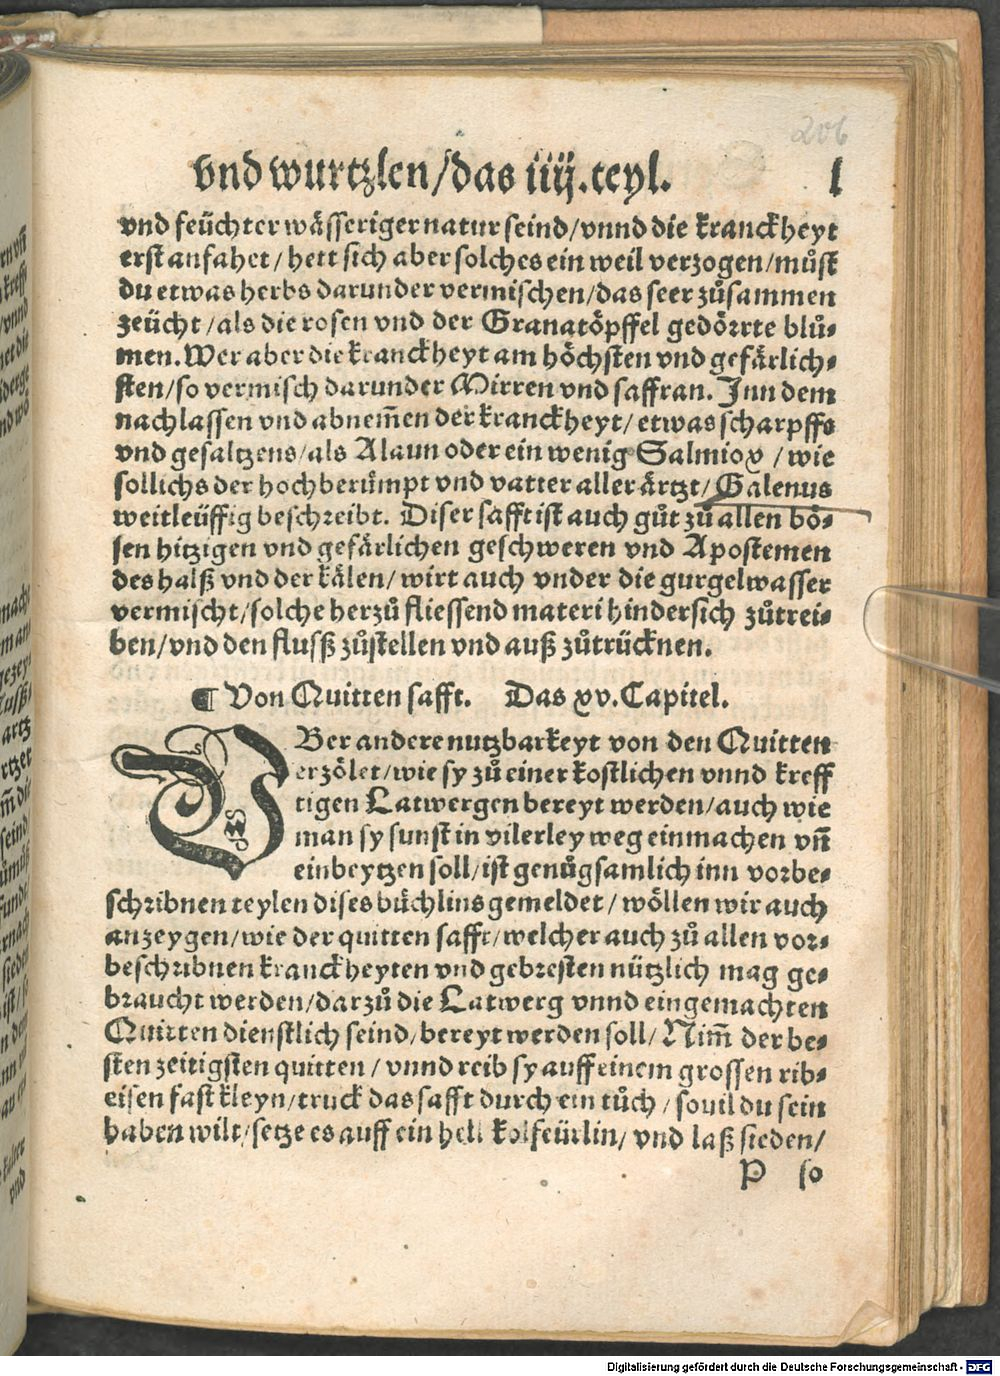 206
vnd wurtzlen/das iiij.teyl. l
vnd feüchter wässeriger natur seind/vnnd die kranckheyt
erst anfahet/hett sich aber solches ein weil verzogen/můst
du etwas herbs darunder vermischen/das seer zůsammen
zeücht/als die rosen vnd der Granatöpffel gedörrte blů-
men.Wer aber die kranckheyt am höchsten vnd gefärlich-
sten/so vermisch darunder Mirren vnd saffran. Jnn dem
nachlassen vnd abnem̃en der kranckheyt/etwas scharpffs
vnd gesaltzens/als Alaun oder ein wenig Salmiox/wie
sollichs der hochberůmpt vnd vatter aller ärtzt/Galenus
weitleüffig beschreibt. Diser safft ist auch gůt zů allen bö-
sen hitzigen vnd gefärlichen geschweren vnd Apostemen
des halß vnd der kälen/wirt auch vnder die gurgelwasser
vermischt/solche herzů fliessend materi hindersich zůtrei-
ben/vnd den flusß zůstellen vnd auß zůtrücknen.
¶ Von Quitten safft. Das xv.Capitel.
JBer andere nutzbarkeyt von den Quitten
erzölet/wie sy zů einer kostlichen vnnd kreff
tigen Latwergen bereyt werden/auch wie
man sy sunst in vilerley weg einmachen vñ
einbeytzen soll/ist genůgsamlich inn vorbe-
schribnen teylen dises büchlins gemeldet/wöllen wir auch
anzeygen/wie der quitten safft/welcher auch zů allen vor-
beschribnen kranckheyten vnd gebresten nützlich mag ge-
braucht werden/darzů die Latwerg vnnd eingemachten
Quitten dienstlich seind/bereyt werden soll/Nim̃ der be-
sten zeitigsten quitten/vnnd reib sy auff einem grossen rib-
eisen fast kleyn/truck das safft durch ein tůch/souil du sein
haben wilt/setze es auff ein hell kolfeürlin/vnd laß sieden/
P so
Digitalisierung gefördert durch die Deutsche Forschungsgemeinschaft - DFG